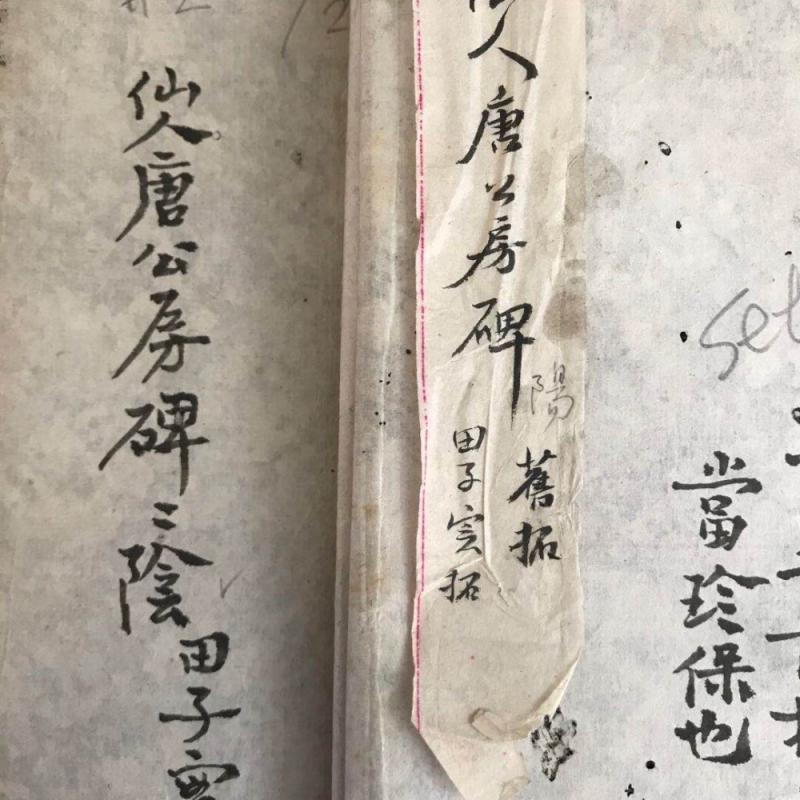 set
當珍保也
人唐公房碑
陽
舊拓
田子拓
仙人唐公房碑〻陰
田子